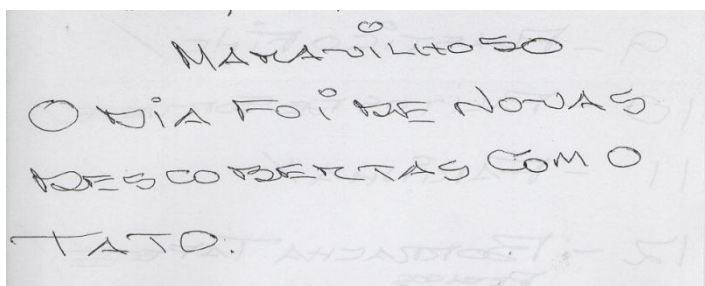 MARAVILHOSO
O DIA FOI DE NOVAS
DESCOBERTAS COM O
TATO.